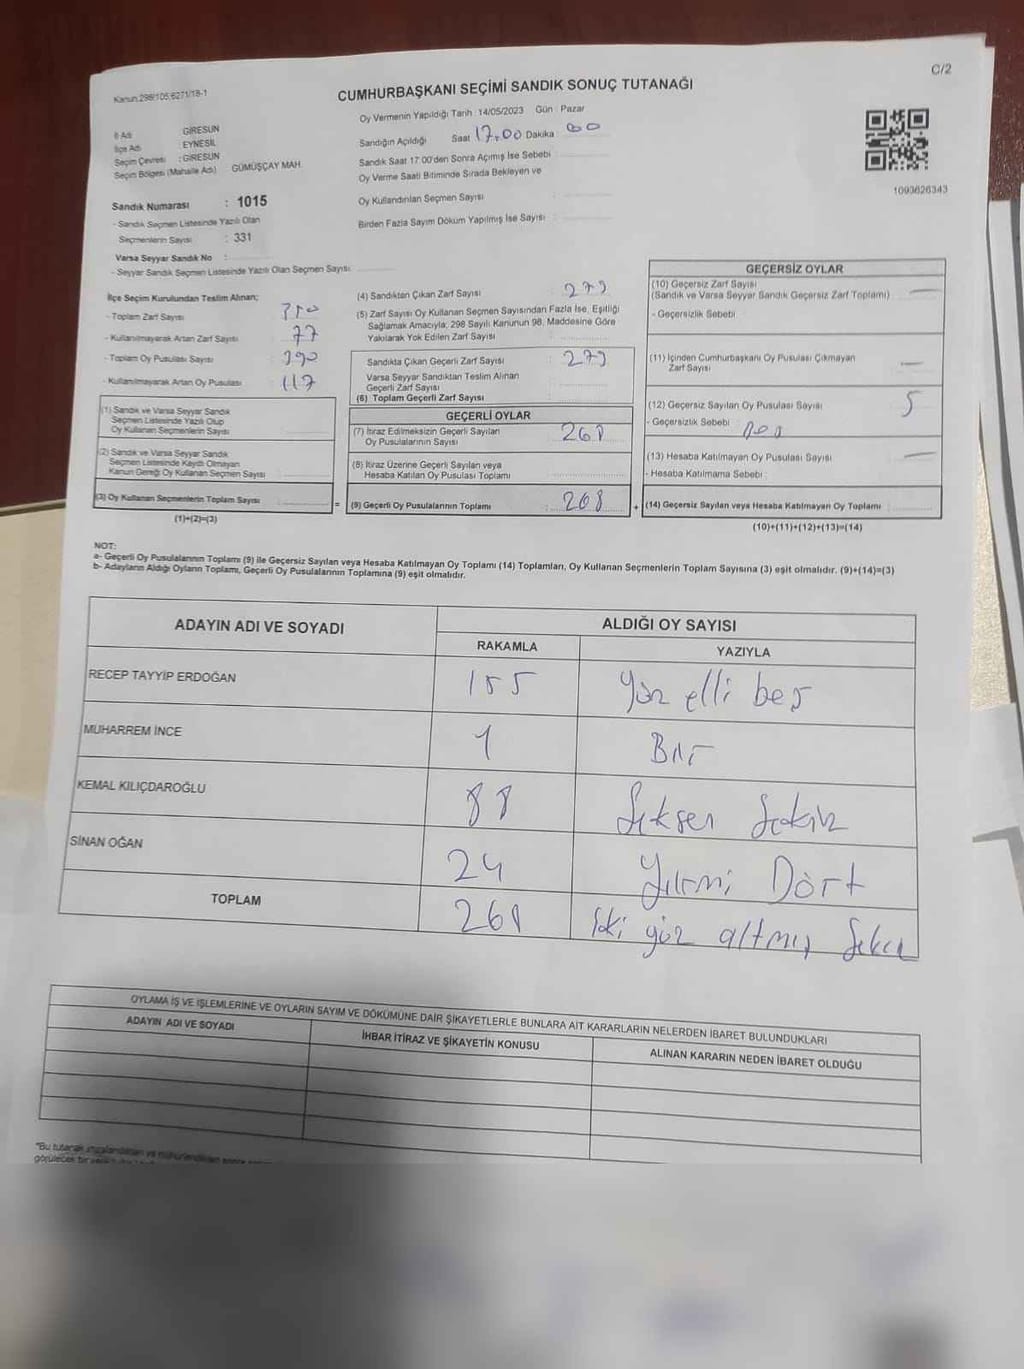 C/2
Kanun:298/105;6271/18-1
CUMHURBAŞKANI SEÇİMİ SANDIK SONUÇ TUTANAĞI
Oy Vermenin Yapıldığı Tarih : 14/05/2023 Gün : Pazar
İl Adı GİRESUN
İlçe Adı EYNESİL
Seçim Çevresi : GİRESUN
Seçim Bölgesi (Mahalle Adı) GÜMÜŞÇAY MAH.
Sandığın Açıldığı Saat 17.00 Dakika 00
Sandık Saat 17.00'den Sonra Açılmış İse Sebebi :
Oy Verme Saati Bitiminde Sırada Bekleyen ve
Oy Kullandırılan Seçmen Sayısı :
Birden Fazla Sayım Döküm Yapılmış İse Sayısı :
1093626343
Sandık Numarası : 1015
- Sandık Seçmen Listesinde Yazılı Olan
Seçmenlerin Sayısı : 331
Varsa Seyyar Sandık No :
- Seyyar Sandık Seçmen Listesinde Yazılı Olan Seçmen Sayısı
İlçe Seçim Kurulundan Teslim Alınan;
- Toplam Zarf Sayısı 350
- Kullanılmayarak Artan Zarf Sayısı 77
- Toplam Oy Pusulası Sayısı 390
- Kullanılmayarak Artan Oy Pusulası 117
(1) Sandık ve Varsa Seyyar Sandık
Seçmen Listesinde Yazılı Olup
Oy Kullanan Seçmenlerin Sayısı
(2) Sandık ve Varsa Seyyar Sandık
Seçmen Listesinde Kaydı Olmayan
Kanun Gereği Oy Kullanan Seçmen Sayısı
(3) Oy Kullanan Seçmenlerin Toplam Sayısı =
(1)+(2)=(3)
(4) Sandıktan Çıkan Zarf Sayısı 273
(5) Zarf Sayısı Oy Kullanan Seçmen Sayısından Fazla İse, Eşitliği
Sağlamak Amacıyla; 298 Sayılı Kanunun 98. Maddesine Göre
Yakılarak Yok Edilen Zarf Sayısı
Sandıkta Çıkan Geçerli Zarf Sayısı 273
Varsa Seyyar Sandıktan Teslim Alınan
Geçerli Zarf Sayısı
(6) Toplam Geçerli Zarf Sayısı
GEÇERLİ OYLAR
(7) İtiraz Edilmeksizin Geçerli Sayılan
Oy Pusulalarının Sayısı 268
(8) İtiraz Üzerine Geçerli Sayılan veya
Hesaba Katılan Oy Pusulası Toplamı
(9) Geçerli Oy Pusulalarının Toplamı 268 +
GEÇERSİZ OYLAR
(10) Geçersiz Zarf Sayısı
(Sandık ve Varsa Seyyar Sandık Geçersiz Zarf Toplamı) —
- Geçersizlik Sebebi :
(11) İçinden Cumhurbaşkanı Oy Pusulası Çıkmayan
Zarf Sayısı —
(12) Geçersiz Sayılan Oy Pusulası Sayısı 5
- Geçersizlik Sebebi :
(13) Hesaba Katılmayan Oy Pusulası Sayısı —
- Hesaba Katılmama Sebebi :
(14) Geçersiz Sayılan veya Hesaba Katılmayan Oy Toplamı :
(10)+(11)+(12)+(13)=(14)
NOT:
a- Geçerli Oy Pusulalarının Toplamı (9) ile Geçersiz Sayılan veya Hesaba Katılmayan Oy Toplamı (14) Toplamları, Oy Kullanan Seçmenlerin Toplam Sayısına (3) eşit olmalıdır. (9)+(14)=(3)
b- Adayların Aldığı Oyların Toplamı, Geçerli Oy Pusulalarının Toplamına (9) eşit olmalıdır.
ADAYIN ADI VE SOYADI
ALDIĞI OY SAYISI
RAKAMLA YAZIYLA
RECEP TAYYİP ERDOĞAN 155 Yüz elli beş
MUHARREM İNCE 1 Bir
KEMAL KILIÇDAROĞLU 88 Seksen Sekiz
SİNAN OĞAN 24 Yirmi Dört
TOPLAM 268 İki yüz altmış Sekiz
OYLAMA İŞ VE İŞLEMLERİNE VE OYLARIN SAYIM VE DÖKÜMÜNE DAİR ŞİKAYETLERLE BUNLARA AİT KARARLARIN NELERDEN İBARET BULUNDUKLARI
ADAYIN ADI VE SOYADI İHBAR İTİRAZ VE ŞİKAYETİN KONUSU ALINAN KARARIN NEDEN İBARET OLDUĞU
"Bu tutanak imzalandıktan ve mühürlendikten sonra
görülecek bir